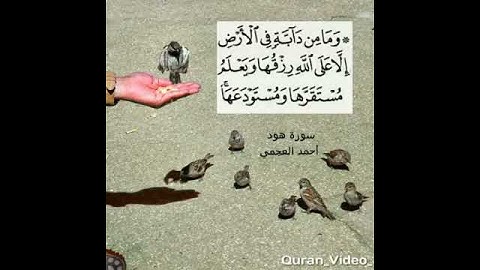 * وَمَا مِن دَآبَّةٍ فِي ٱلْأَرْضِ
إِلَّا عَلَى ٱللَّهِ رِزْقُهَا وَيَعْلَمُ
مُسْتَقَرَّهَا وَمُسْتَوْدَعَهَا ۚ
سورة هود
أحمد العجمي
Quran_Video_